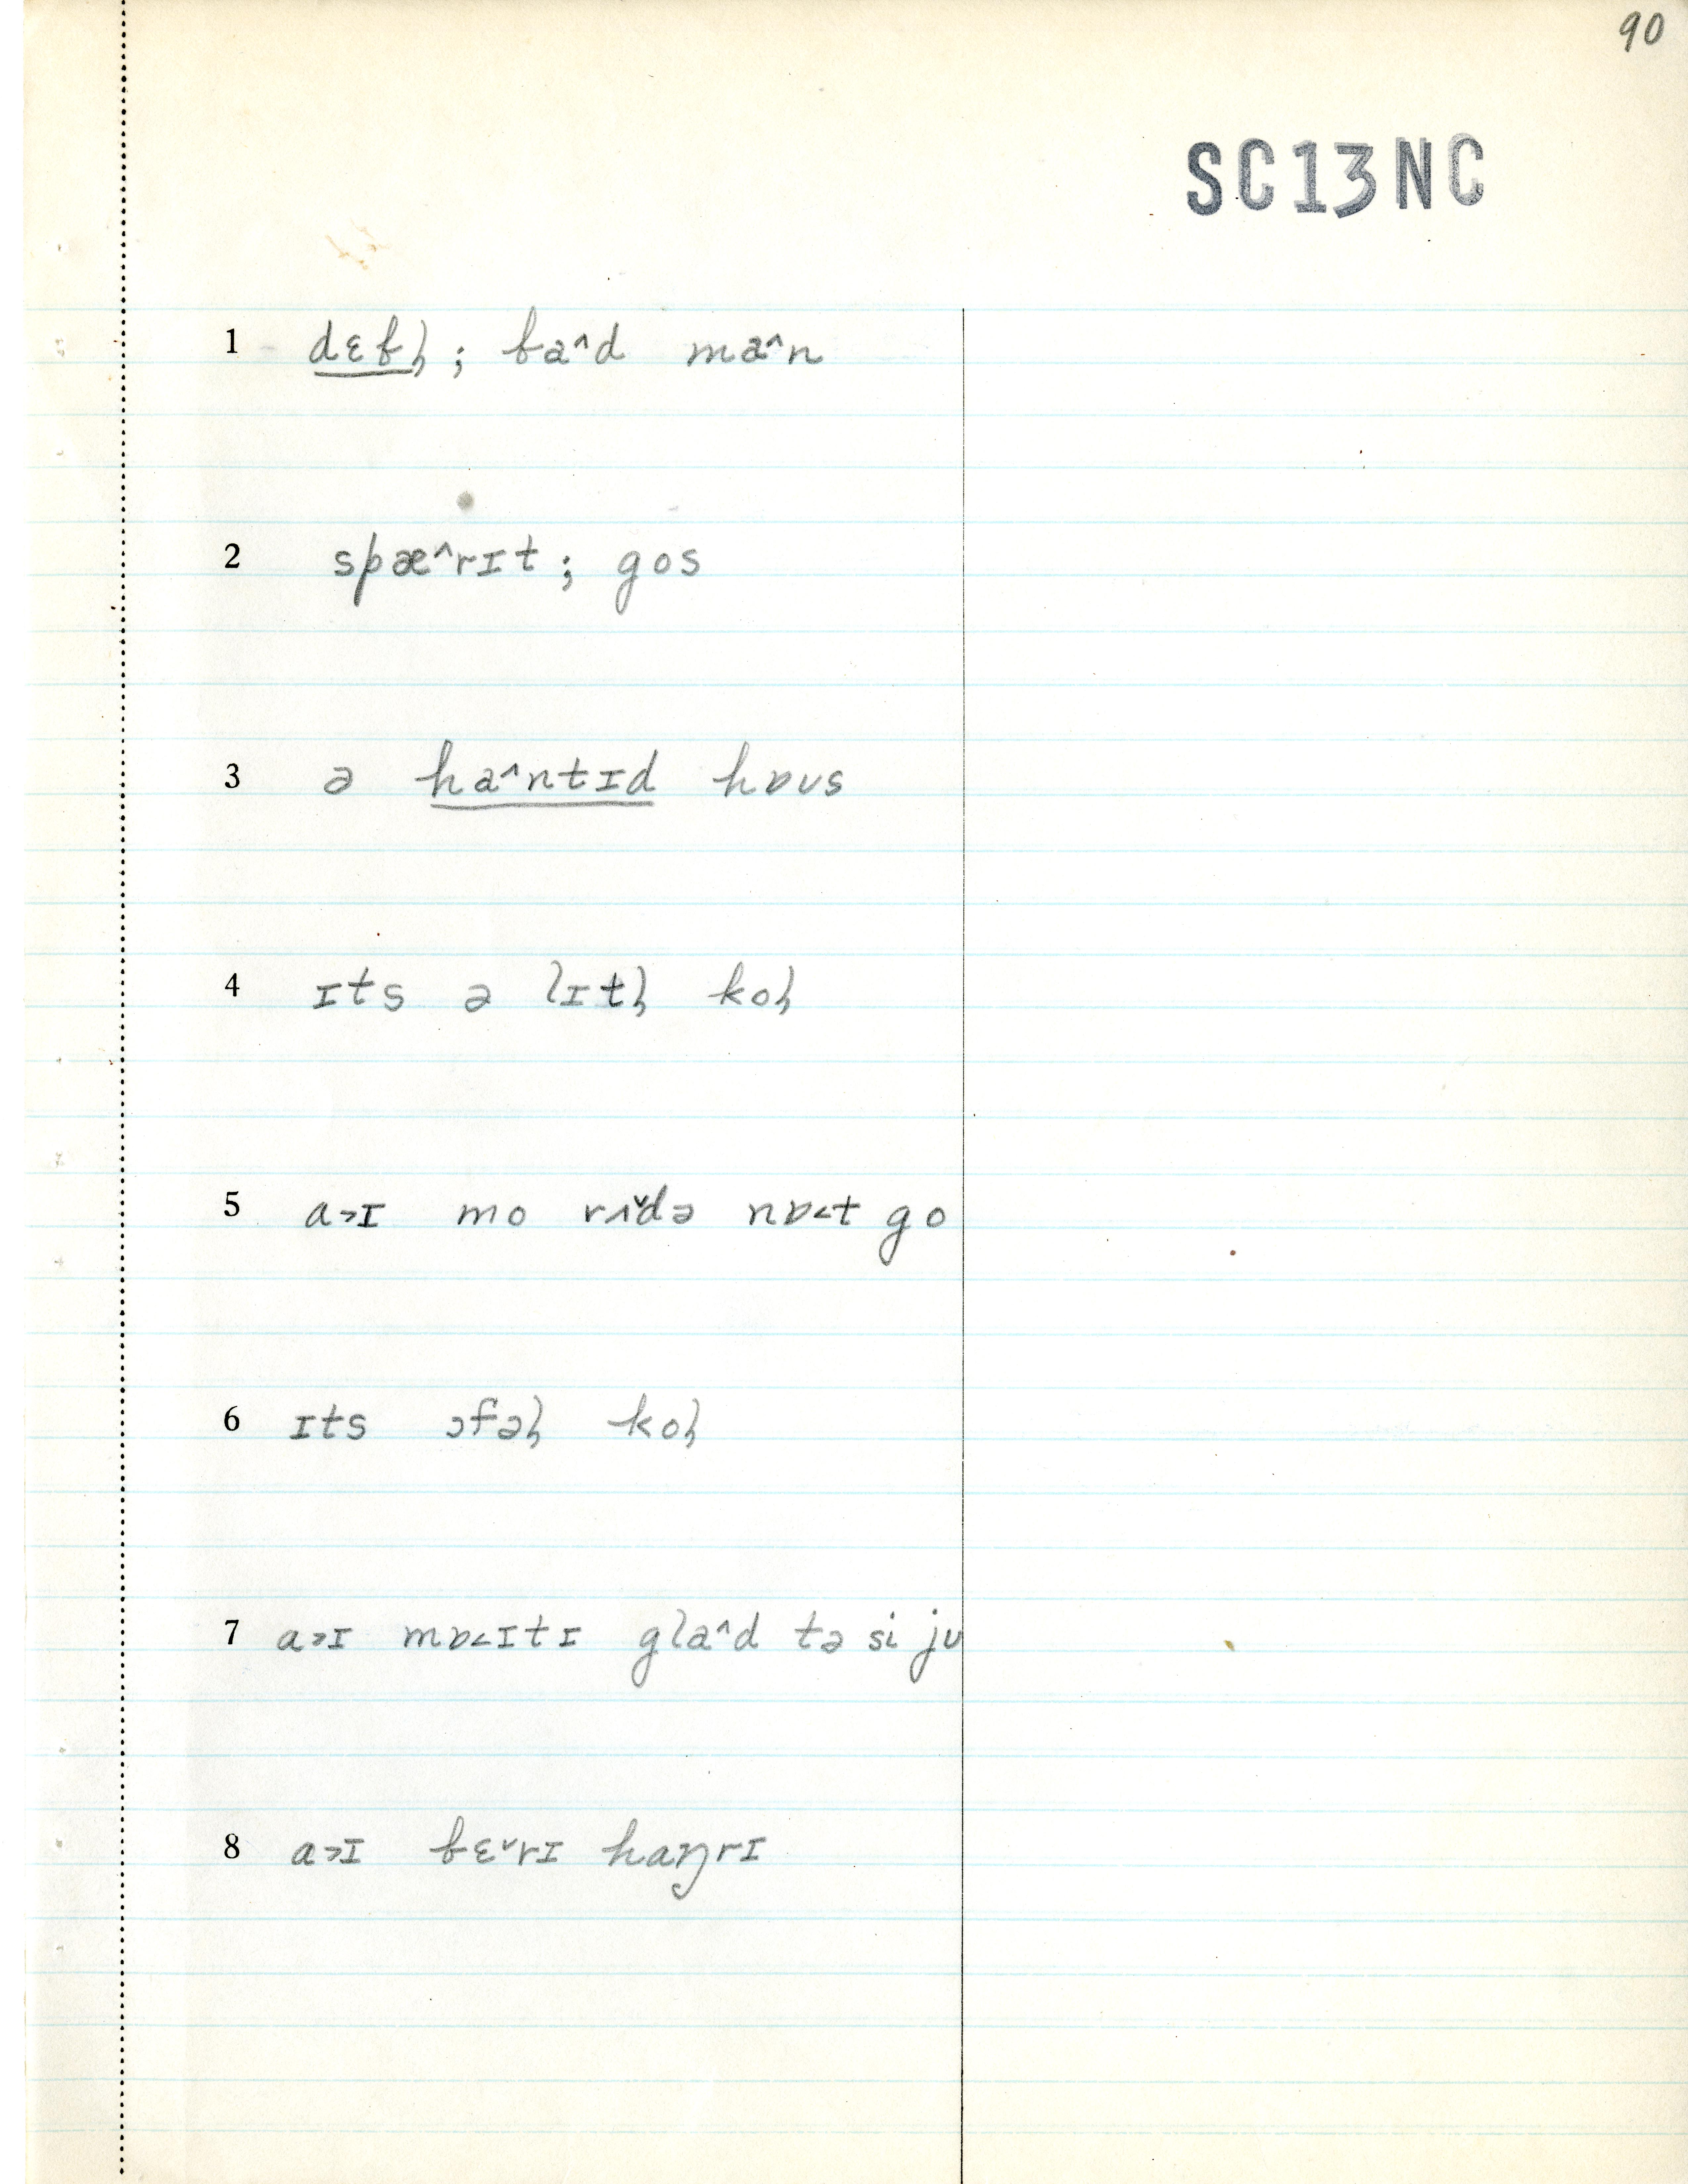 90
SC13NC
1 dɛbl̩ ; ba^d ma^n
2 spæ^rɪt ; gos
3 ə ha^ntɪd hɒʊs
4 ɪts ə lɪtl̩ kol̩
5 a>ɪ mo riˇdə nɒ<t go
6 ɪts ɔfəl̩ kol̩
7 a>ɪ mɒ<ɪtɪ gla^d tə si jʊ
8 a>ɪ bɛˇrɪ haŋrɪ